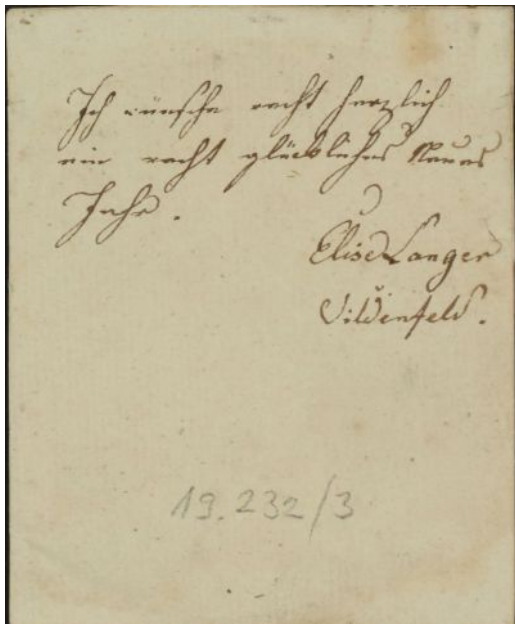 Ich wünsche recht herzlich
ein recht glückliches Neues
Jahr.
Elise Langer
19.232/3